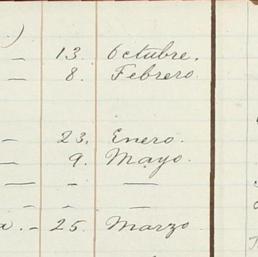 )
— 13. Octubre.
— 8. Febrero.
— 23. Enero.
— 9. Mayo.
— - —
— - —
a. - 25. Marzo